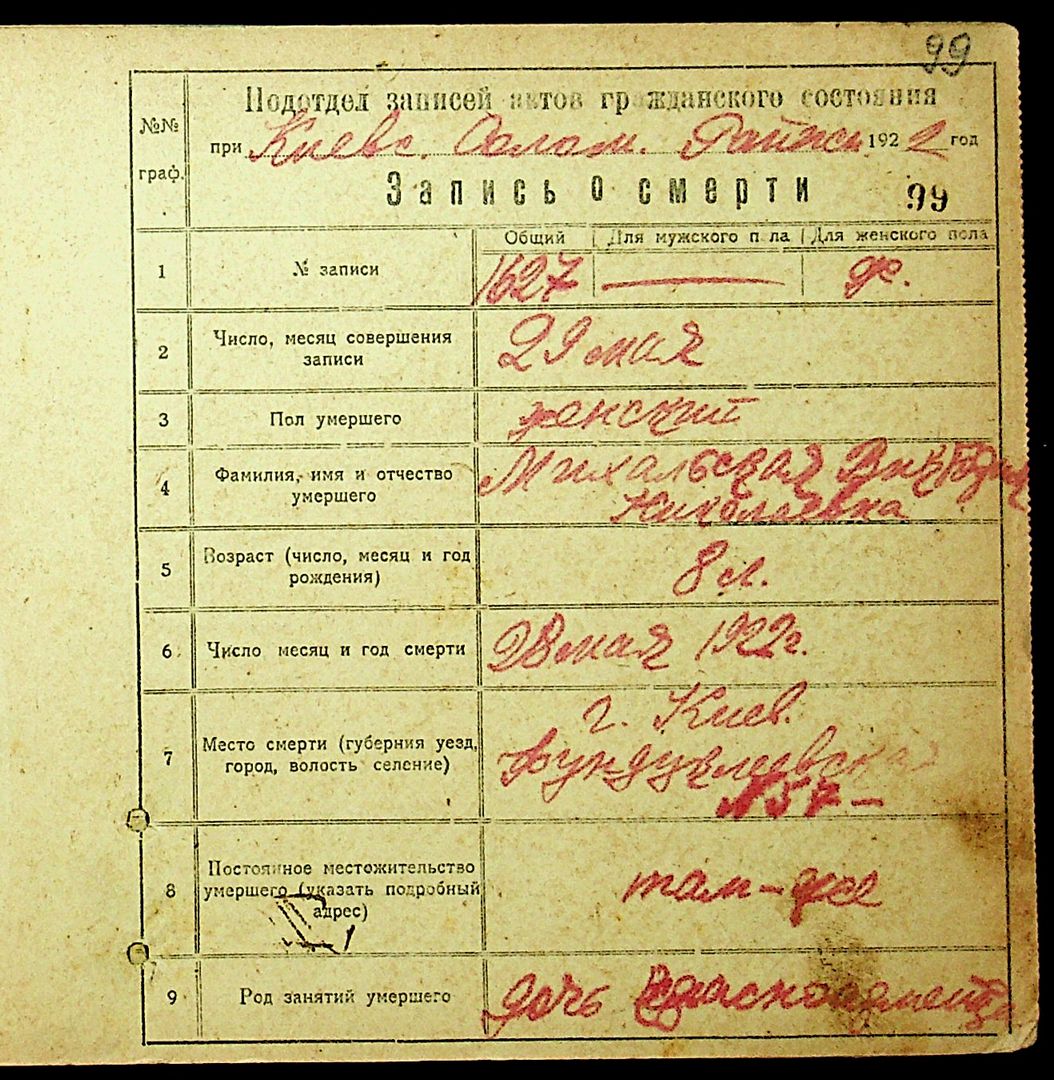 99
Подотдел записей актов гражданского состояния
№№ граф.
при Киевс. Солом. Райже 1922 год
Запись о смерти 99
Общий Для мужского пола Для женского пола
1 № записи 1627 — ж.
2 Число, месяц совершения записи 29 мая
3 Пол умершего женский
4 Фамилия, имя и отчество умершего Михальская Виктория
Николаевна
5 Возраст (число, месяц и год рождения) 8 л.
6 Число месяц и год смерти 28 мая 1922 г.
7 Место смерти (губерния уезд, город, волость селение) г. Киев.
Фундуклеевская
№ 57 —
8 Постоянное местожительство умершего (указать подробный адрес) там-же
9 Род занятий умершего дочь Красноармейца